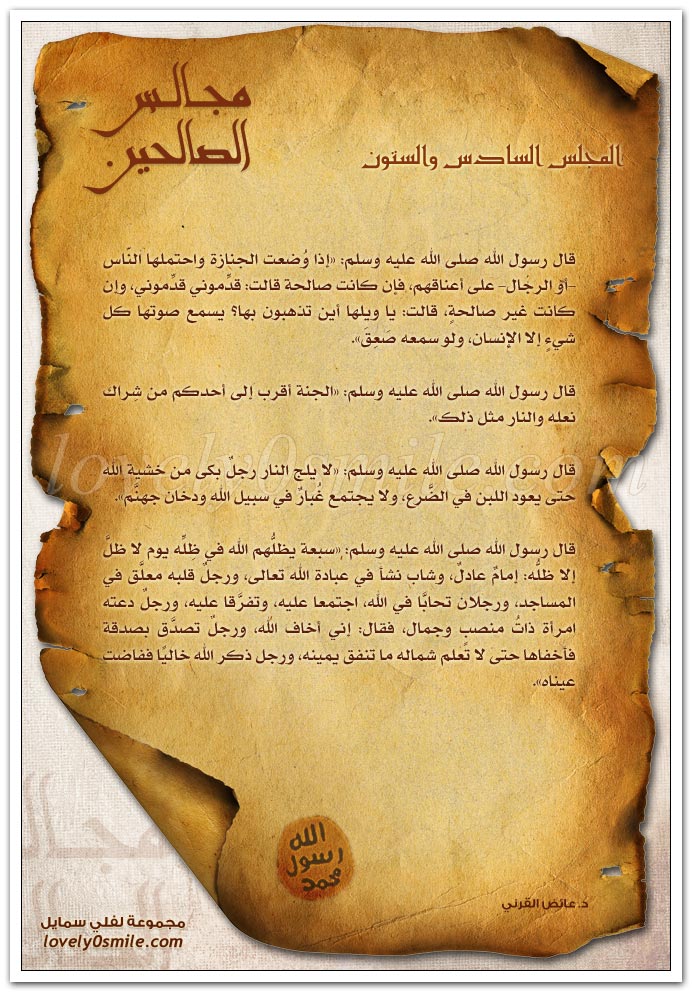 مجالس
الصالحين
المجلس السادس والستون
قال رسول الله صلى الله عليه وسلم: «إذا وُضعت الجنازة واحتملها النَّاس
-أو الرجال- على أعناقهم، فإن كانت صالحة قالت: قدِّموني قدِّموني، وإن
كانت غير صالحةٍ، قالت: يا ويلها أين تذهبون بها؟ يسمع صوتها كل
شيءٍ إلا الإنسان، ولو سمعه صَعِقَ».
قال رسول الله صلى الله عليه وسلم: «الجنة أقرب إلى أحدكم من شراك
نعله والنار مثل ذلك».
قال رسول الله صلى الله عليه وسلم: «لا يلج النار رجلٌ بكى من خشية الله
حتى يعود اللبن في الضَّرع، ولا يجتمع غُبارٌ في سبيل الله ودخان جهنَّم».
قال رسول الله صلى الله عليه وسلم: «سبعة يظلُّهم الله في ظلِّه يوم لا ظلَّ
إلا ظله: إمامٌ عادلٌ، وشاب نشأ في عبادة الله تعالى، ورجلٌ قلبه معلَّق في
المساجد، ورجلان تحابَّا في الله، اجتمعا عليه، وتفرَّقا عليه، ورجلٌ دعته
امرأة ذاتُ منصبٍ وجمال، فقال: إني أخاف الله، ورجلٌ تصدَّق بصدقة
فأخفاها حتى لا تعلم شماله ما تنفق يمينه، ورجل ذكر الله خاليًا ففاضت
عيناه».
الله
رسول
محمد
د.عائض القرني
مجموعة لفلي سمايل
lovely0smile.com
lovely0smile.com
مجالس
الصالحين